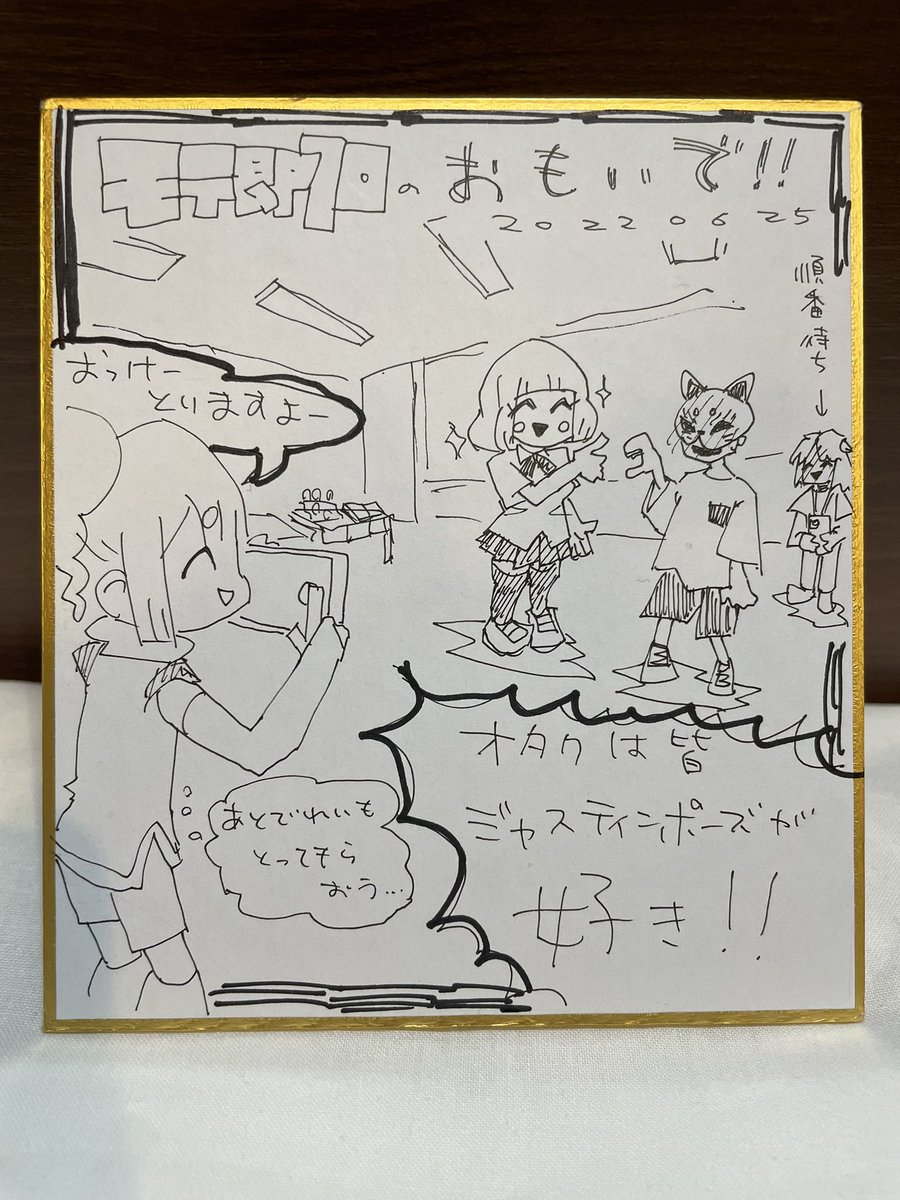 のおもいで!!
2022 06 25
順番待ち↓
おっけー
とりますよー
あとでれいも
とってもら
おう…
オタクは皆
ジャスティンポーズが
好き!!